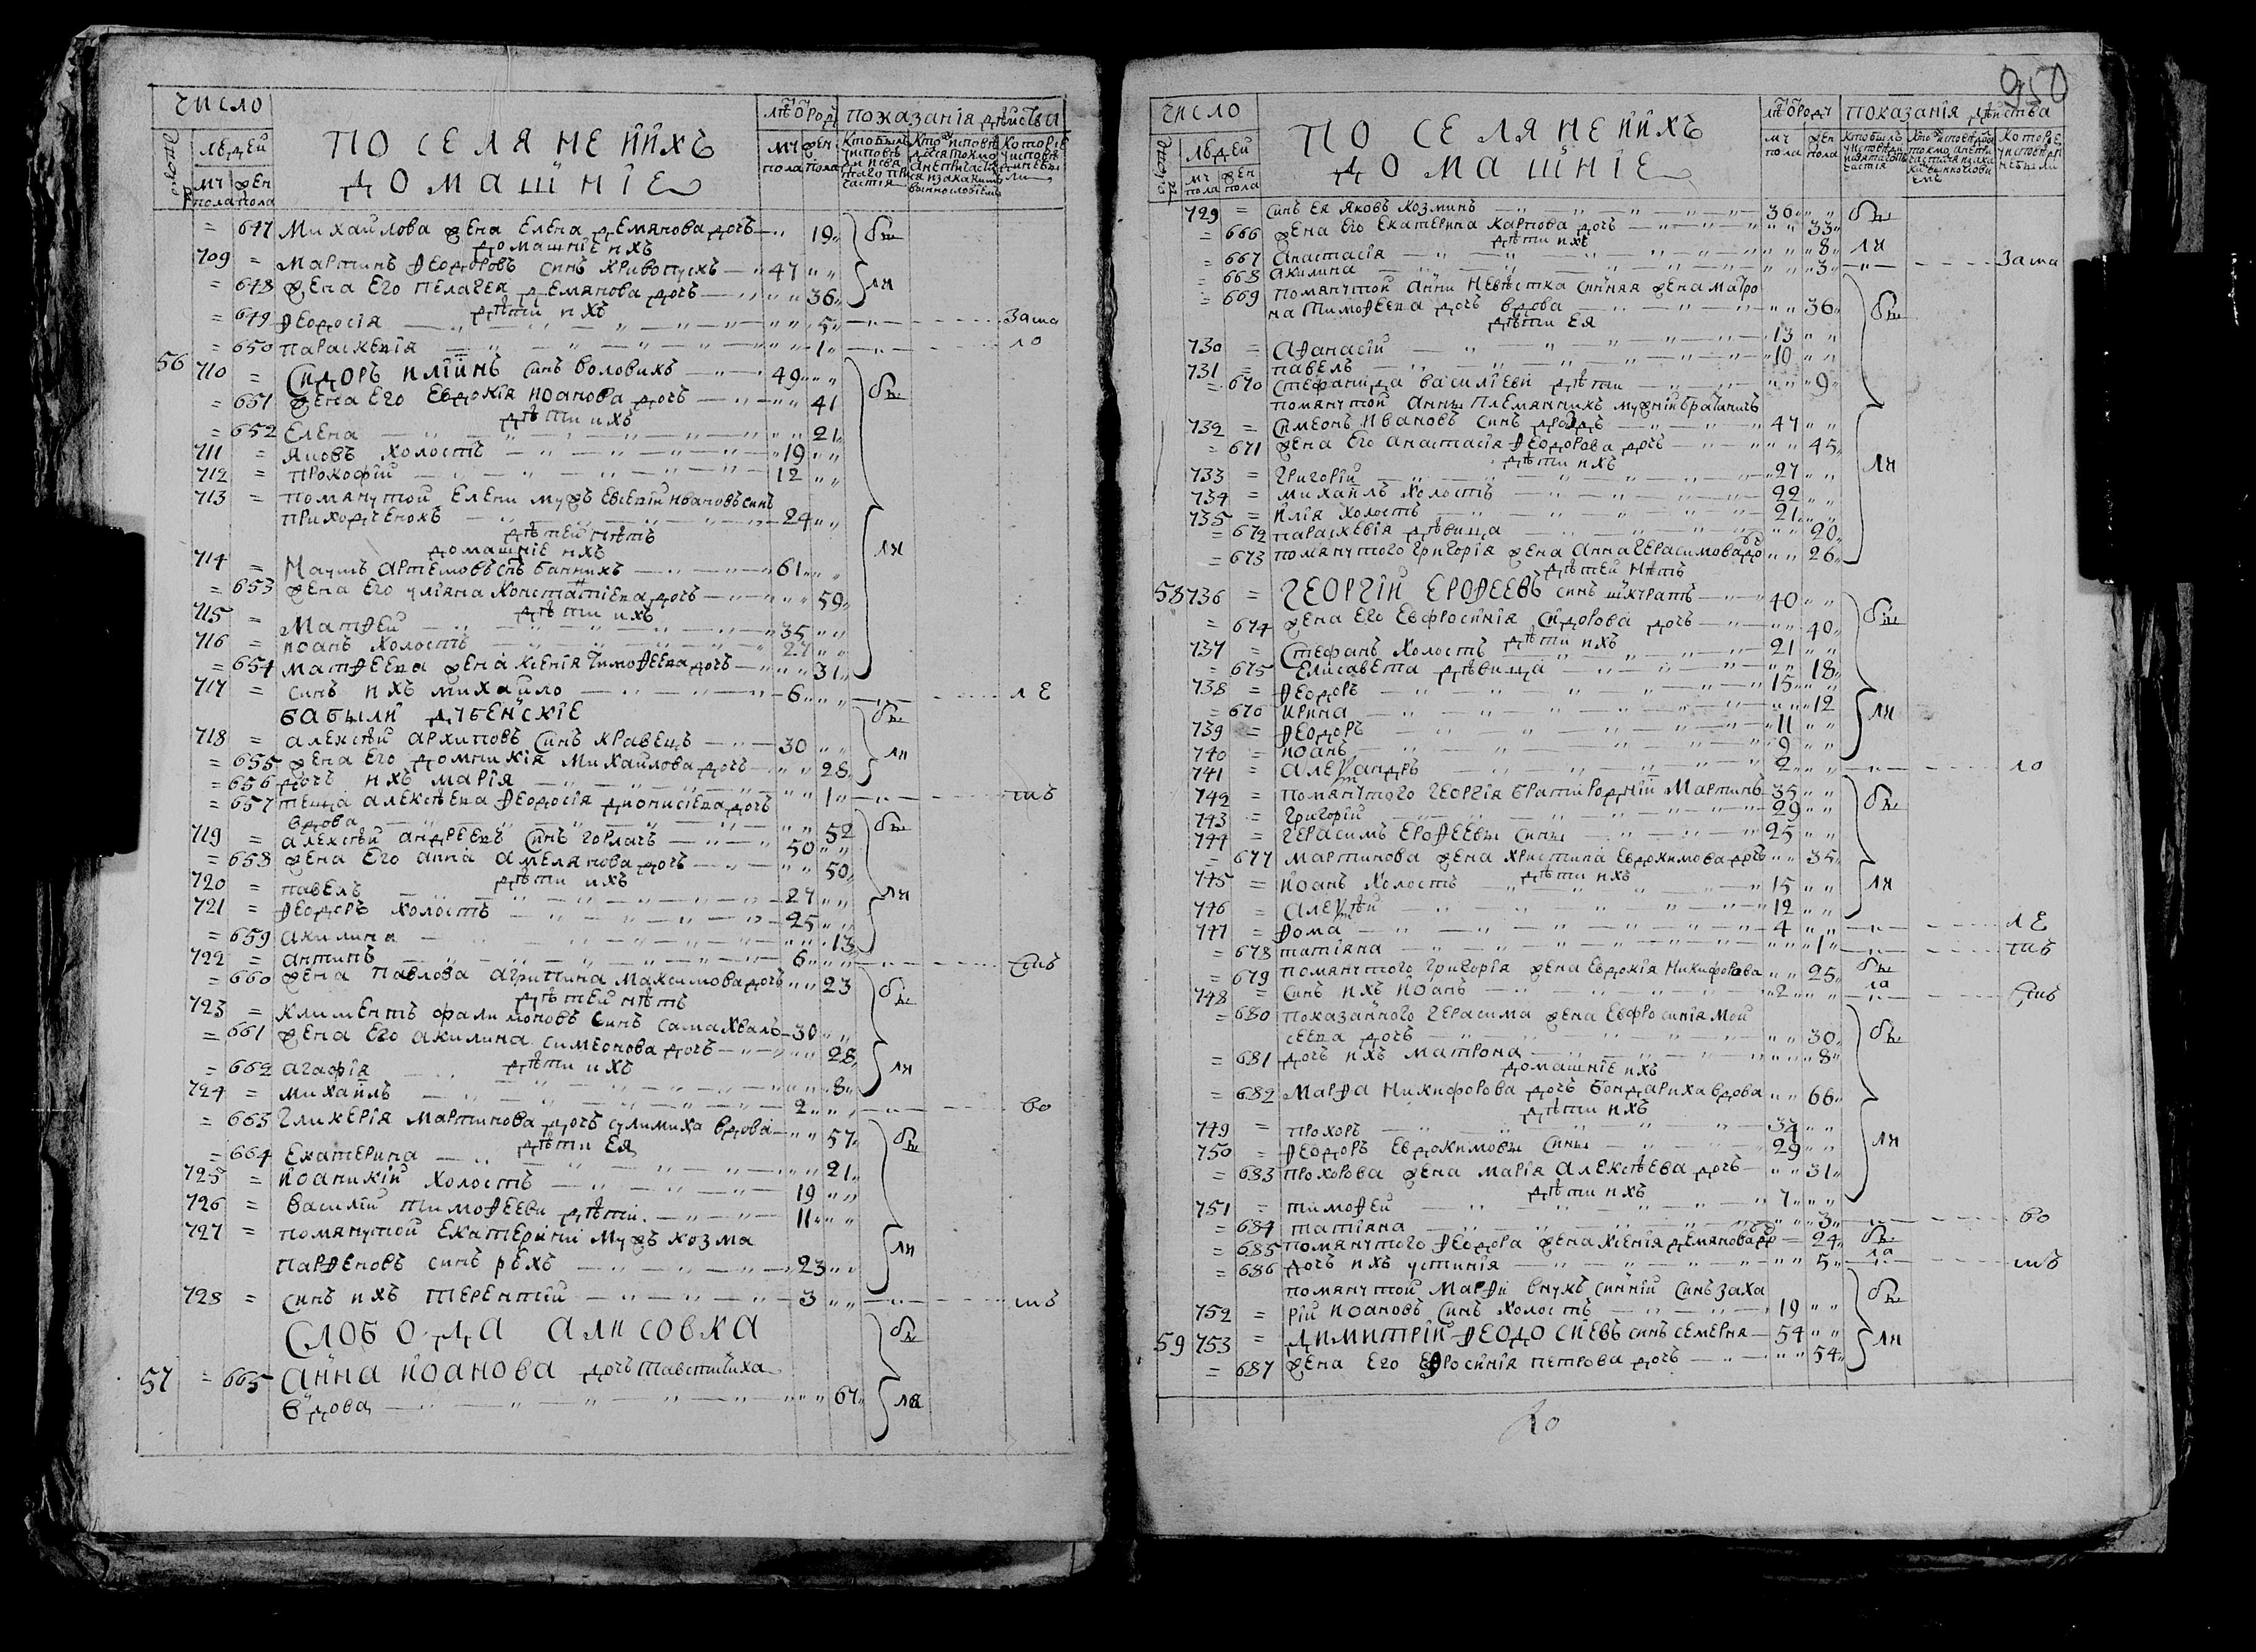 число
ПОСЕЛЯНЕ ИИХЪ
ДОМАШНІЕ
людей
муж пола
жен пола
показанія дѣйства
647 Михайлова жена Елена Демянова дочь 19
домашніе ихъ
709 = Мартинъ Феодоровъ синъ Кривопускъ 47
= 648 жена Его Пелагея Демянова дочь 36
дѣти ихъ
= 649 Феодосія 5 Зама
= 650 Параскевія 1 ло
56 710 = Сидоръ Иліинъ синъ Воловикъ 49
= 651 жена Его Евдокія Иоанова дочь 41
дѣти ихъ
= 652 Елена 21
711 = Яковъ холостъ 19
712 = Прокофій 12
713 = помянутой Елени мужъ Евсевій Ивановъ синъ
Приходченокъ 24
дѣтей нѣтъ
домашніе ихъ
714 = Наумъ Артемовъ снъ Банникъ 61
= 653 жена Его Уліяна Константіева дочь 59
дѣти ихъ
715 = Матфей 35
716 = Иоанъ холостъ 27
= 654 Матфеева жена Ксенія Тимофеева дочь 31
717 = синъ ихъ Михайло 6 ле
бабыли дубенскіе
718 = Алексѣй Архиповъ синъ Кравецъ 30
= 655 жена Его Домникія Михайлова дочь 28
= 656 дочь ихъ Марія 1 шъ
= 657 теща Алексѣева Феодосія Дионисіева дочь
вдова 52
719 = Алексѣй Андреевъ синъ Горлачъ 50
= 658 жена Его Анна Амелянова дочь 50
дѣти ихъ
720 = Павелъ 27
721 = Феодоръ холостъ 25
= 659 Акилина 13
722 = Антипъ 6
= 660 жена Павлова Агрипина Максимова дочь 23
дѣтей нѣтъ
723 = Климентъ Фалимоновъ синъ Самахвалъ 30
= 661 жена Его Акилина Симеонова дочь 28
дѣти ихъ
= 662 Агафія 8
724 = Михаилъ 2 во
= 663 Гликерія Мартинова дочь Сулимиха вдова 57
дѣти Ея
= 664 Екатерина 21
725 = Иоаникій холостъ 19
726 = Василій Тимофееви дѣти 11
727 = помянутой Екатерини мужъ Козма
Парфеновъ синъ Рѣхъ 23
728 = синъ ихъ Терентій 3 шъ
Слобода Алисовка
57 = 665 Анна Иоанова дочь Тавстишиха
вдова 67
950
число
ПОСЕЛЯНЕ ИИХЪ
ДОМАШНІЕ
людей
муж пола
жен пола
показанія дѣйства
729 = синъ Ея Яковъ Козминъ 36
= 666 жена Его Екатерина Карпова дочь 33
дѣти ихъ
= 667 Анастасія 8
= 668 Акилина 3 Зама
= 669 помянутой Анни невѣстка синняя жена Матро
на Тимофеева дочь вдова 36
дѣти Ея
730 = Афанасій 13
731 = Павелъ 10
= 670 Стефанида Василіеви дѣти 9
помянутой Анны племянникъ мужній братаничъ
732 = Симеонъ Ивановъ синъ 47
= 671 жена Его Анастасія Феодорова дочь 45
дѣти ихъ
733 = Григорій 27
734 = Михаилъ холостъ 22
735 = Илія холостъ 21
= 672 Параскевія дѣвица 20
= 673 помянутого Григорія жена Анна Герасимова до 26
дѣтей нѣтъ
58 736 = Георгій Ерофеевъ синъ Шкуратъ 40
= 674 жена Его Евфросинія Сидорова дочь 40
дѣти ихъ
737 = Стефанъ холостъ 21
= 675 Елисавета дѣвица 18
738 = Феодоръ 15
= 676 Ирина 12
739 = Феодоръ 11
740 = Иоанъ 9
741 = Алеѯандръ 2 ло
742 = помянутого Георгія братъ родній Мартинъ 35
743 = Григорій 29
744 = Герасимъ Ерофеевы сины 25
= 677 Мартинова жена Христина Евдокимова дочь 35
дѣти ихъ
745 = Иоанъ холостъ 15
746 = Алеѯѣй 12
747 = Фома 4 ле
= 678 Татіяна 1 шъ
= 679 помянутого Григорія жена Евдокія Никифорова 25
748 = синъ ихъ Иоанъ 2
= 680 показанного Герасима жена Евфросинія Мои
сеева дочь 30
= 681 дочь ихъ Матрона 8
домашніе ихъ
= 682 Марфа Никифорова дочь Бондариха вдова 66
дѣти ихъ
749 = Прохоръ 34
750 = Феодоръ Евдокимовы сины 29
= 683 Прохорова жена Марія Алексѣева дочь 31
дѣти ихъ
751 = Тимофей 7
= 684 Татіяна 3 во
= 685 помянутого Феодора жена Ксенія Демянова до 24
= 686 дочь ихъ Устинія 5 шъ
помянутой Марфи внукъ синній синъ Заха
752 = рій Иоановъ синъ холостъ 19
59 753 = Димитрій Феодосіевъ синъ Семерня 54
= 687 жена Его Ефросинія Петрова дочь 54